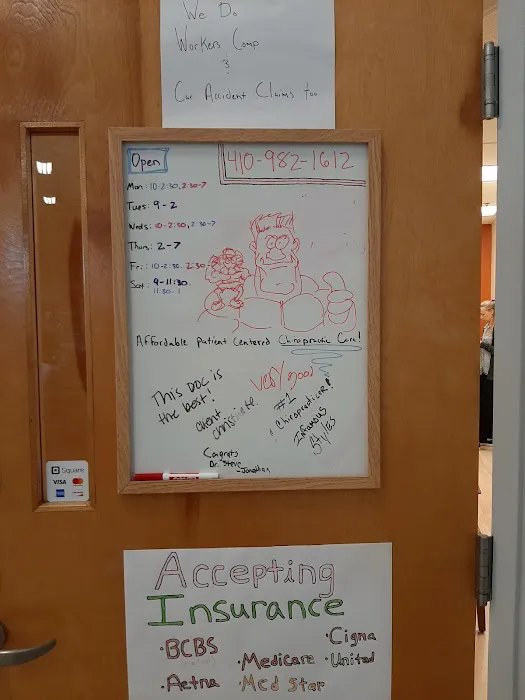 We Do
Workers Comp
&
Car Accident Claims too
Open
410-982-1612
Mon: 10-2:30, 2:30-7
Tues: 9-2
Weds: 10-2:30, 2:30-7
Thurs: 2-7
Fri: 10-2:30, 2:30
Sat: 9-11:30
11:30-1
Affordable Patient Centered Chiropractic Care!
This DOC is
the best!
client
very good
#1
Chiropractior!
Infamous
Styles
Congrats
Dr. Steve
-Jonathan
Square
VISA
Accepting
Insurance
·BCBS
·Aetna
·Medicare
Med Star
·Cigna
·United